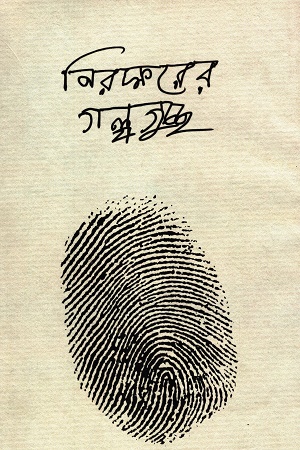 নিরক্ষরের
গল্পগুচ্ছ